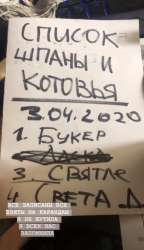 СПИСОК
ШПАНЫ И
КОТОВЬЯ
3.04.2020
1. БУКЕР
3. СВЯТЛЕ
4. СВЕТА Д
ВСЕ ЗАПИСАНЫ ВСЕ
ВЗЯТЫ НА КАРАНДАШ
Я ВСЕХ ВАС
ЗАПОМНИЛА